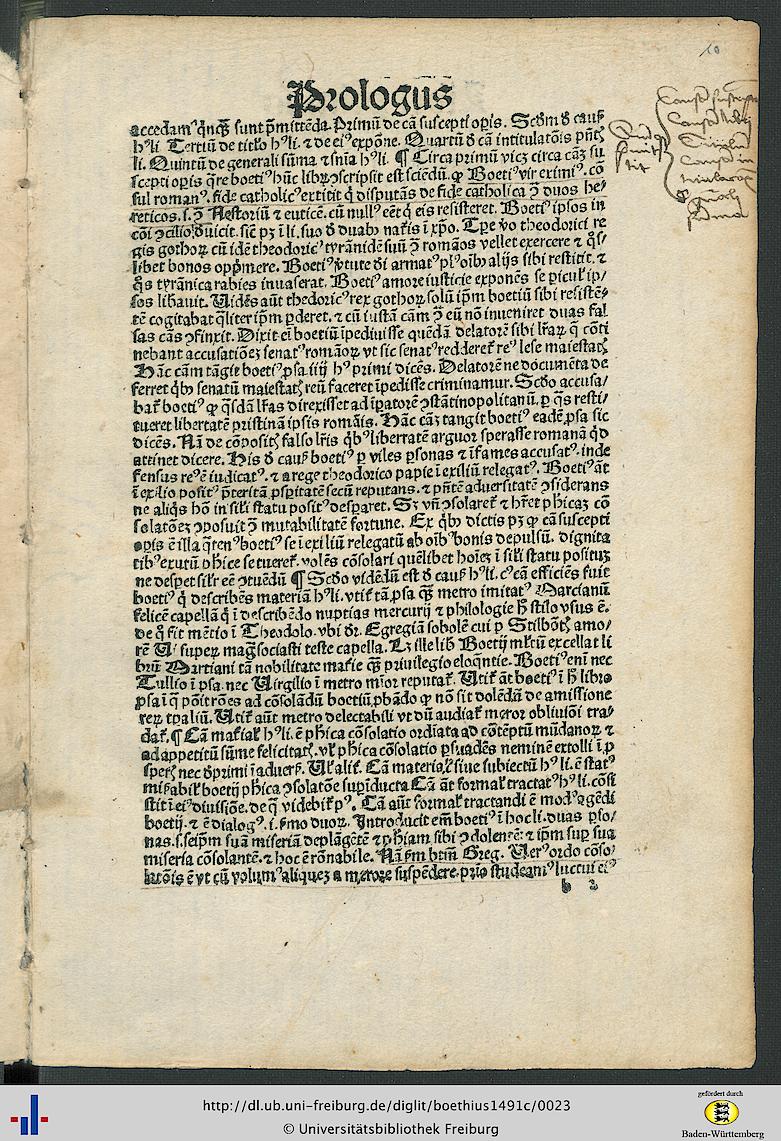 Prologus
accedam⁹ q̃nq̃ sunt p̃mittẽda. Primũ de cã suscepti op̃is. Scd̃m d̃ cauß
h⁹li. Tertiũ de titl̃o h⁹li. ⁊ de ei⁹ expõne. Quartũ d̃ cã intitulatõis p̃ñtꝭ
li. Quintũ de generali sũma ⁊ sñia h⁹li. ¶ Circa primũ vicꝫ circa cãꝫ su
scepti op̃is q̃re boeti⁹ hũc librꝫ ꝯscripsit est sciendũ. ꝙ Boeti⁹ vir eximi⁹. cõ
sul roman⁹. fide catholic⁹ extitit q̃ disputãs de fide catholica ꝯ̃ duos he/
reticos. s. ꝯ̃ Nestoriũ ⁊ euticẽ. cũ null⁹ eẽt q̃ eis resisteret. Boeti⁹ ipsos in
cõi ꝯcilio ꝯ̃uicit. sic̃ pꝫ ĩ li. suo d̃ duabꝰ naťis ĩ xp̃o. Tp̃e v̾o theodorici re
gis gothoꝝ cũ idẽ theodoric⁹ tyrãnidẽ suũ ꝯ̃ romãos vellet exercere ⁊ q̃s/
libet bonos opp̃mere. Boeti⁹ v̾tute d̾i armat⁹ pl⁹ oĩbꝰ alijs sibi restitit. ⁊
q̃s tyrãnica rabies inuaserat. Boeti⁹ amore iusticie exponẽs se picul̃ ip/
sos lib̾auit. Uidẽs aũt thedoric⁹ rex gothoꝝ solũ ip̃m boetiũ sibi resistẽ/
tẽ cogitabat q̃liter ip̃m p̱deret. ⁊ cũ iustã cãm ꝯ̃ eũ nõ inueniret duas fal
sas cãs ꝯfinxit. Dixit em̃ boetiũ ĩpediuisse quẽdã delatorẽ sibi lr̃aꝝ q̃ cõti
nebant accusatiõeꝫ senat⁹ romãoꝝ vt sic senat⁹ redderet̃ re⁹ lese maiestatꝭ
Hãc cãm tãgit boeti⁹ ꝓsa iiij h⁹ primi dicẽs. Delatorẽ ne documẽta de
ferret q̃bꝰ senatũ maiestatꝭ reũ faceret ĩpedisse criminamur. Scd̃o accusa/
bat̃ boeti⁹ ꝙ q̃sdã lr̃as direxisset ad ip̱atorẽ ꝯstãtinopolitanũ. p̱ q̃s resti/
tueret libertatẽ pristinã ipsis romãis. Hãc cãꝫ tangit boeti⁹ eadẽ ꝓsa sic
dicẽs. Nã de cõpositꝭ falso lr̃is q̃bꝰ libertatẽ arguor sperasse romanã q̃d
attinet dicere. His d̃ cauß boeti⁹ p̱ viles p̱sonas ⁊ ĩfames accusat⁹. inde
fensus re⁹ ẽ iudicat⁹. ⁊ a rege theodorico papie ĩ exiliũ relegat⁹. Boeti⁹ ãt
ĩ exilio posit⁹ p̃teritã ꝓspitatẽ secũ reputans. ⁊ p̃ñtẽ aduersitatẽ ꝯsiderans
ne aliq̃s hõ in sil̃i statu posit⁹ desp̱aret. Sꝫ vñ ꝯsolaret̃ ⁊ hr̃et ph̃icaꝫ cõ
solatõeꝫ ꝯposuit ꝯ̃ mutabilitatẽ fortune. Ex q̃bꝰ dictis pꝫ ꝙ cã suscepti
op̱is ẽ illa q̃tenꝰ boeti⁹ se ĩ exiliũ relegatũ ab oĩbꝰ bonis depulsũ. dignita
tibꝰ exutũ ph̃ice se tueret̃. volẽs cõsolari quẽlibet hoĩeꝫ ĩ sil̃i statu posituꝫ
ne despet sil̃r eẽ ꝯtuẽdũ ¶ Scd̃o vidẽdũ est d̃ cauß h⁹li. c⁹ cã efficiẽs fuit
boeti⁹ q̃ describẽs materiã h⁹li. vtit̃ tã ꝓsa q̃ꝫ metro imitat⁹ Marcianũ
felicẽ capellã q̃ ĩ describẽdo nuptias mercurij ⁊ philologie h̃ stilo vsus ẽ.
de q̃ fit mẽtio ĩ Theodolo. vbi dr̃. Egregiã sobolẽ cui p̱ Stilbõtꝭ amo/
rẽ Uĩ superꝫ mag̃ sociasti teste capella. Lꝫ ille lib̾ Boetij ml̃tũ excellat li
brũ Martiani tã nobilitate mat̃ie q̃ꝫ priuilegio eloq̃ntie. Boeti⁹ eni nec
Tullio ĩ ꝓsa. nec Uirgilio ĩ metro mĩor reputat̃. Utit̃ ãt boeti⁹ ĩ h̃ libro
ꝓsa ĩ q̃ põit rões ad cõsolãdũ boetiũ, ꝓbãdo ꝙ nõ sit dolẽdũ de amissione
reꝝ tp̃aliũ. Utit̃ aũt metro delectabili vt dũ audiat̃ meror obliuiõi tra/
dat̃. ¶ Cã mat̃ial̃ h⁹li. ẽ ph̃ica cõsolatio ordiata ad cõtẽptũ mũdanoꝝ ⁊
ad appetitũ sũme felicitatꝭ. vl̃ ph̃ica cõsolatio p̱suadẽs neminẽ extolli ĩ ꝓ
sperꝭ nec d̃primi ĩ aduerß. Ul̃ alit̃. Cã material̃ siue subiectũ h⁹li. ẽ stat⁹
miẞabil̃ boetij ph̃ica ꝯsolatõe sup̱ĩducta Cã ãt formal̃ tractat⁹ h⁹li. cõsi
stit ĩ ei⁹ diuisiõe. de q̃ videbit̃ p⁹. Cã aũt formal̃ tractandi ẽ mod⁹ agẽdi
boetij. ⁊ ẽ dialog⁹. i. ẞmo duoꝝ. Introducit em̃ boeti⁹ ĩ hoc li. duas p̱so/
nas. s. seip̃m suã miseriã deplãgẽtẽ ⁊ ph̃iam sibi ꝯdolẽtẽ. ⁊ ip̃m sup̱ sua
miseria cõsolantẽ. ⁊ hoc ẽ rõnabile. Nã ẞm btm̃ Greg. Uer⁹ ordo cõso/
latiõis ẽ vt cũ volum⁹ aliqueꝫ a merore suspẽdere. prio studeam⁹ luctui ei⁹
b 2
10
http://dl.ub.uni-freiburg.de/diglit/boethius1491c/0023
© Universitätsbibliothek Freiburg
gefördert durch
Baden-Württemberg